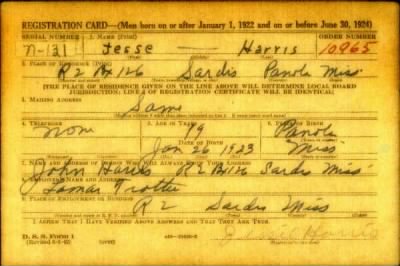 REGISTRATION CARD—(Men born on or after January 1, 1922 and on or before June 30, 1924)
SERIAL NUMBER 1. NAME (Print) ORDER NUMBER
N-131 Jesse — Harris 10965
2. PLACE OF RESIDENCE (Print)
R2 Bx 126 Sardis Panola Miss
(THE PLACE OF RESIDENCE GIVEN ON THE LINE ABOVE WILL DETERMINE LOCAL BOARD
JURISDICTION; LINE 2 OF REGISTRATION CERTIFICATE WILL BE IDENTICAL)
3. MAILING ADDRESS
Same
4. TELEPHONE 5. AGE IN YEARS 6. PLACE OF BIRTH
None 19 Panola
DATE OF BIRTH
Jan 26 1923 Miss
7. NAME AND ADDRESS OF PERSON WHO WILL ALWAYS KNOW YOUR ADDRESS
John Harris R2 Bx 126 Sardis Miss
8. EMPLOYER'S NAME AND ADDRESS
Lamar Trotter
9. PLACE OF EMPLOYMENT OR BUSINESS
R2 Sardis Miss
I AFFIRM THAT I HAVE VERIFIED ABOVE ANSWERS AND THAT THEY ARE TRUE.
D. S. S. Form 1
Harris